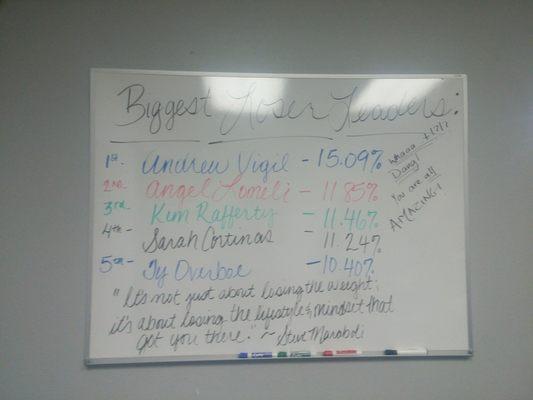 Biggest Loser Leaders:
1st. Andrew Vigil - 15.09%
2nd Angel Lomeli - 11.85%
3rd Kim Rafferty - 11.467%
4th - Sarah Cortinas - 11.247%
5th - Ty Overboe - 10.407%
"It's not just about losing the weight;
it's about losing the lifestyle & mindset that
got you there." ~ Steve Maraboli
whaaa
Dang!
You are all
AMAZING!